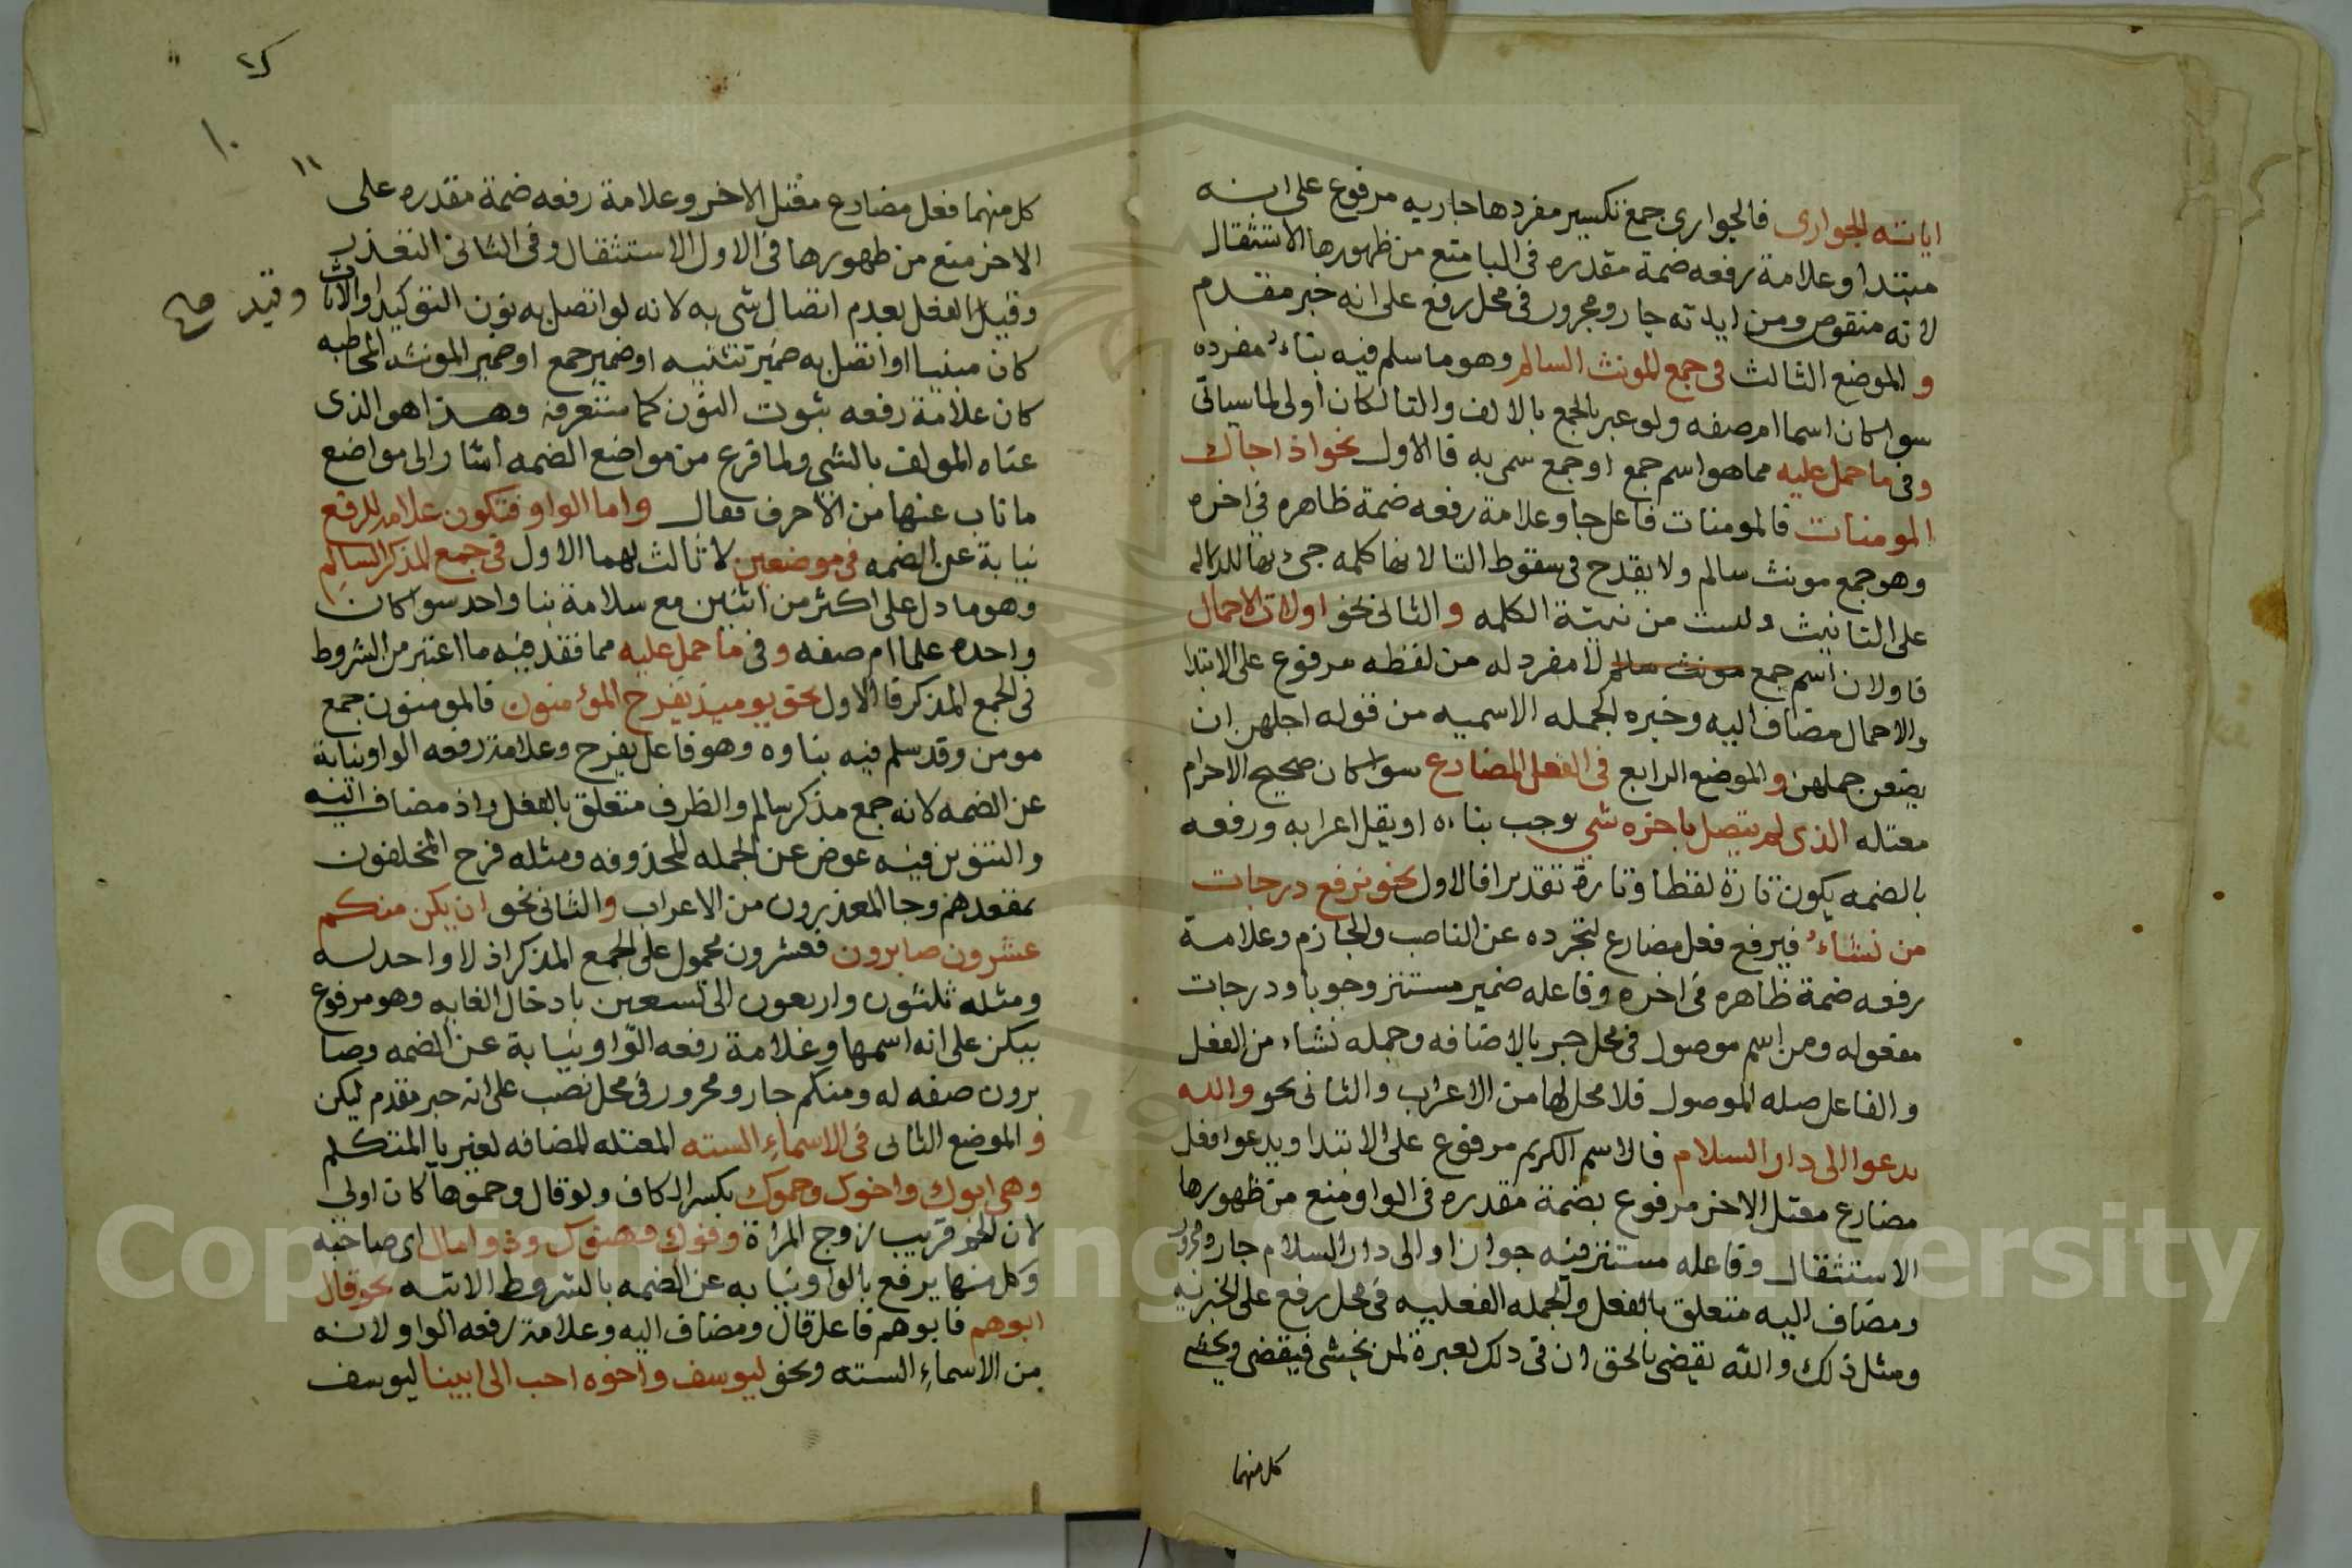 اياته الجوارى فالجوارى جمع تكسير مفردها جاريه مرفوع على انه
مبتدا وعلامة رفعه ضمة مقدره فى اليا منع من ظهورها الاستثقال
لانه منقوص ومن اياته جار ومجرور فى محل رفع على انه خبر مقدم
و الموضع الثالث فى جمع المونث السالم وهو ما سلم فيه بناء مفرده
سوا كان اسما ام صفه ولو عبر بالجمع بالالف والتا لكان اولى لما سياتى
وفى ما حمل عليه مما هو اسم جمع او جمع سمى به فالاول نحو اذا جاك
المومنات فالمومنات فاعل جا وعلامة رفعه ضمة ظاهره فى اخره
وهو جمع مونث سالم ولا يقدح فى سقوط التا لانها كلمه جىء بها للدلاله
على التانيث وليست من بنية الكلمه والثانى نحو اولات الاحمال
فاولات اسم جمع مونث سالم لا مفرد له من لفظه مرفوع على الابتدا
والاحمال مضاف اليه وخبره الجمله الاسميه من قوله اجلهن ان
يضعن حملهن والموضع الرابع فى الفعل المضارع سوا كان صحيح الاخر ام
معتله الذى لم يتصل باخره شي يوجب بناءه او ينقل اعرابه ورفعه
بالضمه يكون تارة لفظا وتارة تقديرا فالاول نحو نرفع درجات
من نشاء فيرفع فعل مضارع لتجرده عن الناصب والجازم وعلامة
رفعه ضمة ظاهره فى اخره وفاعله ضمير مستتر وجوبا ودرجات
مفعوله ومن اسم موصول فى محل جر بالاضافه وجمله نشاء من الفعل
والفاعل صله الموصول فلا محل لها من الاعراب والثانى نحو والله
يدعوا الى دار السلام فالاسم الكريم مرفوع على الابتدا ويدعوا فعل
مضارع معتل الاخر مرفوع بضمة مقدره فى الواو منع من ظهورها
الاستثقال وفاعله مستتر فيه جوازا والى دار السلام جار ومجرور
ومضاف اليه متعلق بالفعل والجمله الفعليه فى محل رفع على الخبريه
ومثل ذلك والله يقضى بالحق ان فى ذلك لعبرة لمن يخشى فيقضى ويخشى
كل منهما
كل منهما فعل مضارع معتل الاخر وعلامة رفعه ضمة مقدره على
الاخر منع من ظهورها فى الاول الاستثقال وفى الثانى التعذر
وقيد الفعل بعدم اتصال شى به لانه لو اتصل به نون التوكيد او الاناث
وقيد صح
كان مبنيا او اتصل به ضمير تثنيه او ضمير جمع او ضمير المونثه المخاطبه
كان علامة رفعه ثبوت النون كما ستعرفه وهذا هو الذى
عناه المولف بالشي ولما فرغ من مواضع الضمه اشار الى مواضع
ما ناب عنها من الاحرف فقال واما الواو فتكون علامة للرفع
نيابة عن الضمه فى موضعين لا ثالث لهما الاول فى جمع المذكر السالم
وهو ما دل على اكثر من اثنين مع سلامة بنا واحد سوا كان
واحده علما ام صفه وفى ما حمل عليه مما فقد فيه ما اعتبر من الشروط
فى الجمع المذكر فالاول نحو يوميذ يفرح المؤمنون فالمومنون جمع
مومن وقد سلم فيه بناوه وهو فاعل يفرح وعلامة رفعه الواو نيابة
عن الضمه لانه جمع مذكر سالم والظرف متعلق بالفعل واذ مضاف اليه
والتنوين فيه عوض عن الجمله المحذوفه ومثله فرح المخلفون
بمقعدهم وجا المعذرون من الاعراب والثانى نحو ان يكن منكم
عشرون صابرون فعشرون محمول على الجمع المذكر اذ لا واحد له
ومثله ثلثون واربعون الى تسعين بادخال الغايه وهو مرفوع
بيكن على انه اسمها وعلامة رفعه الواو نيابة عن الضمه وصا
برون صفه له ومنكم جار ومجرور فى محل نصب على انه خبر مقدم ليكن
و الموضع الثانى فى الاسماء السته المعتله المضافه لغير يا المتكلم
وهى ابوك واخوك وحموك بكسر الكاف ولو قال وحموها كان اولى
لان الحمو قريب زوج المراة وفوك وهنوك وذو مال اى صاحبه
وكل منها يرفع بالواو نيابه عن الضمه بالشروط الاتيه نحو قال
ابوهم فابوهم فاعل قال ومضاف اليه وعلامة رفعه الواو لانه
من الاسماء السته ونحو ليوسف واخوه احب الى ابينا ليوسف
Copyright © King Saud University